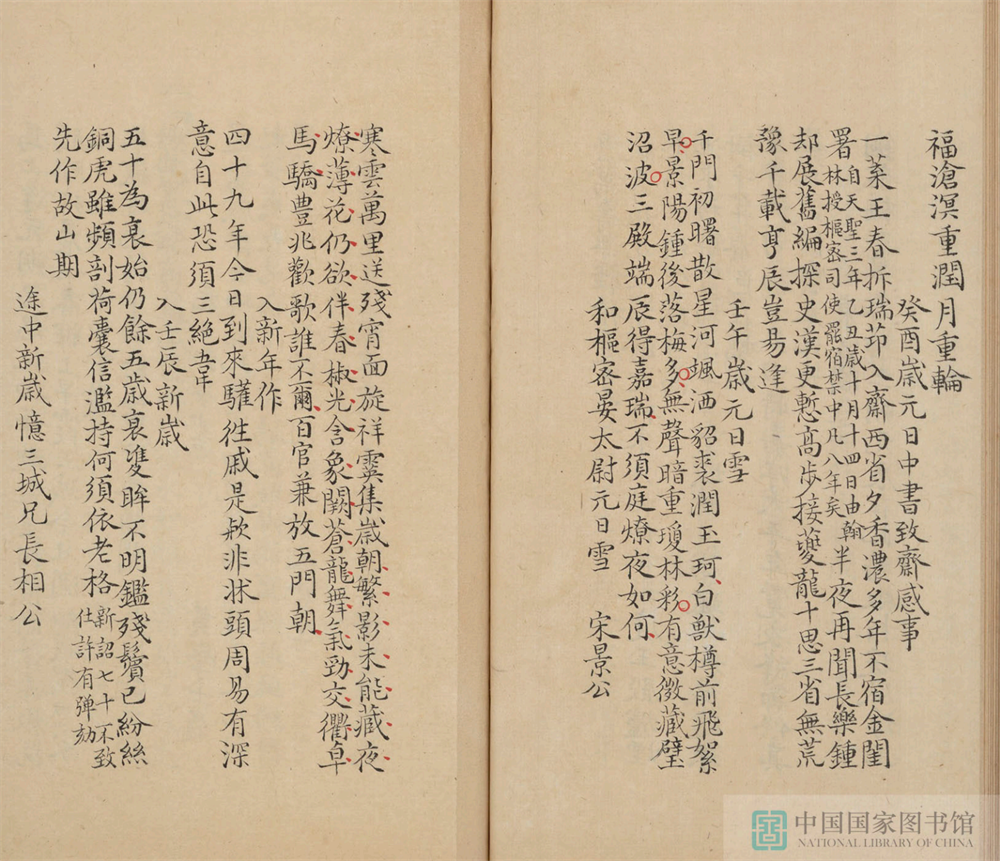 福滄溟重潤月重輪
癸酉歲元日中書致齋感事
一葉王春拆瑞茚入齋西省夕香濃多年不宿金閨
署自天聖三年乙丑歲十月十四日由翰林授樞密司使罷宿禁中凡八年矣半夜再聞長樂鍾
却展舊編探史漢更慙高步接夔龍十思三省無荒
豫千載亨辰豈易逢
壬午歲元日雪
千門初曙散星河颯洒貂裘潤玉珂白獸樽前飛絮
早景陽鍾後落梅多無聲暗重瓊林彩有意微藏璧
沼波三殿端辰得嘉瑞不須庭燎夜如何
和樞密晏太尉元日雪 宋景公
寒雲萬里送殘宵面旋祥霙集歲朝繁影未能藏夜
燎薄花仍欲伴春椒光含象闕蒼龍舞氣勁交衢卓
馬驕豊兆歡歌誰不爾百官兼放五門朝
入新年作
四十九年今日到來驩徃戚是歟非牀頭周易有深
意自此恐須三絕韋
入壬辰新歲
五十為衰始仍餘五歲衰雙眸不明鑑殘鬢已紛絲
銅虎雖頻剖荷囊信濫持何須依老格新詔七十不致仕許有弹劾
先作故山期
途中新歲憶三城兄長相公
中国国家图书馆
NATIONAL LIBRARY OF CHINA